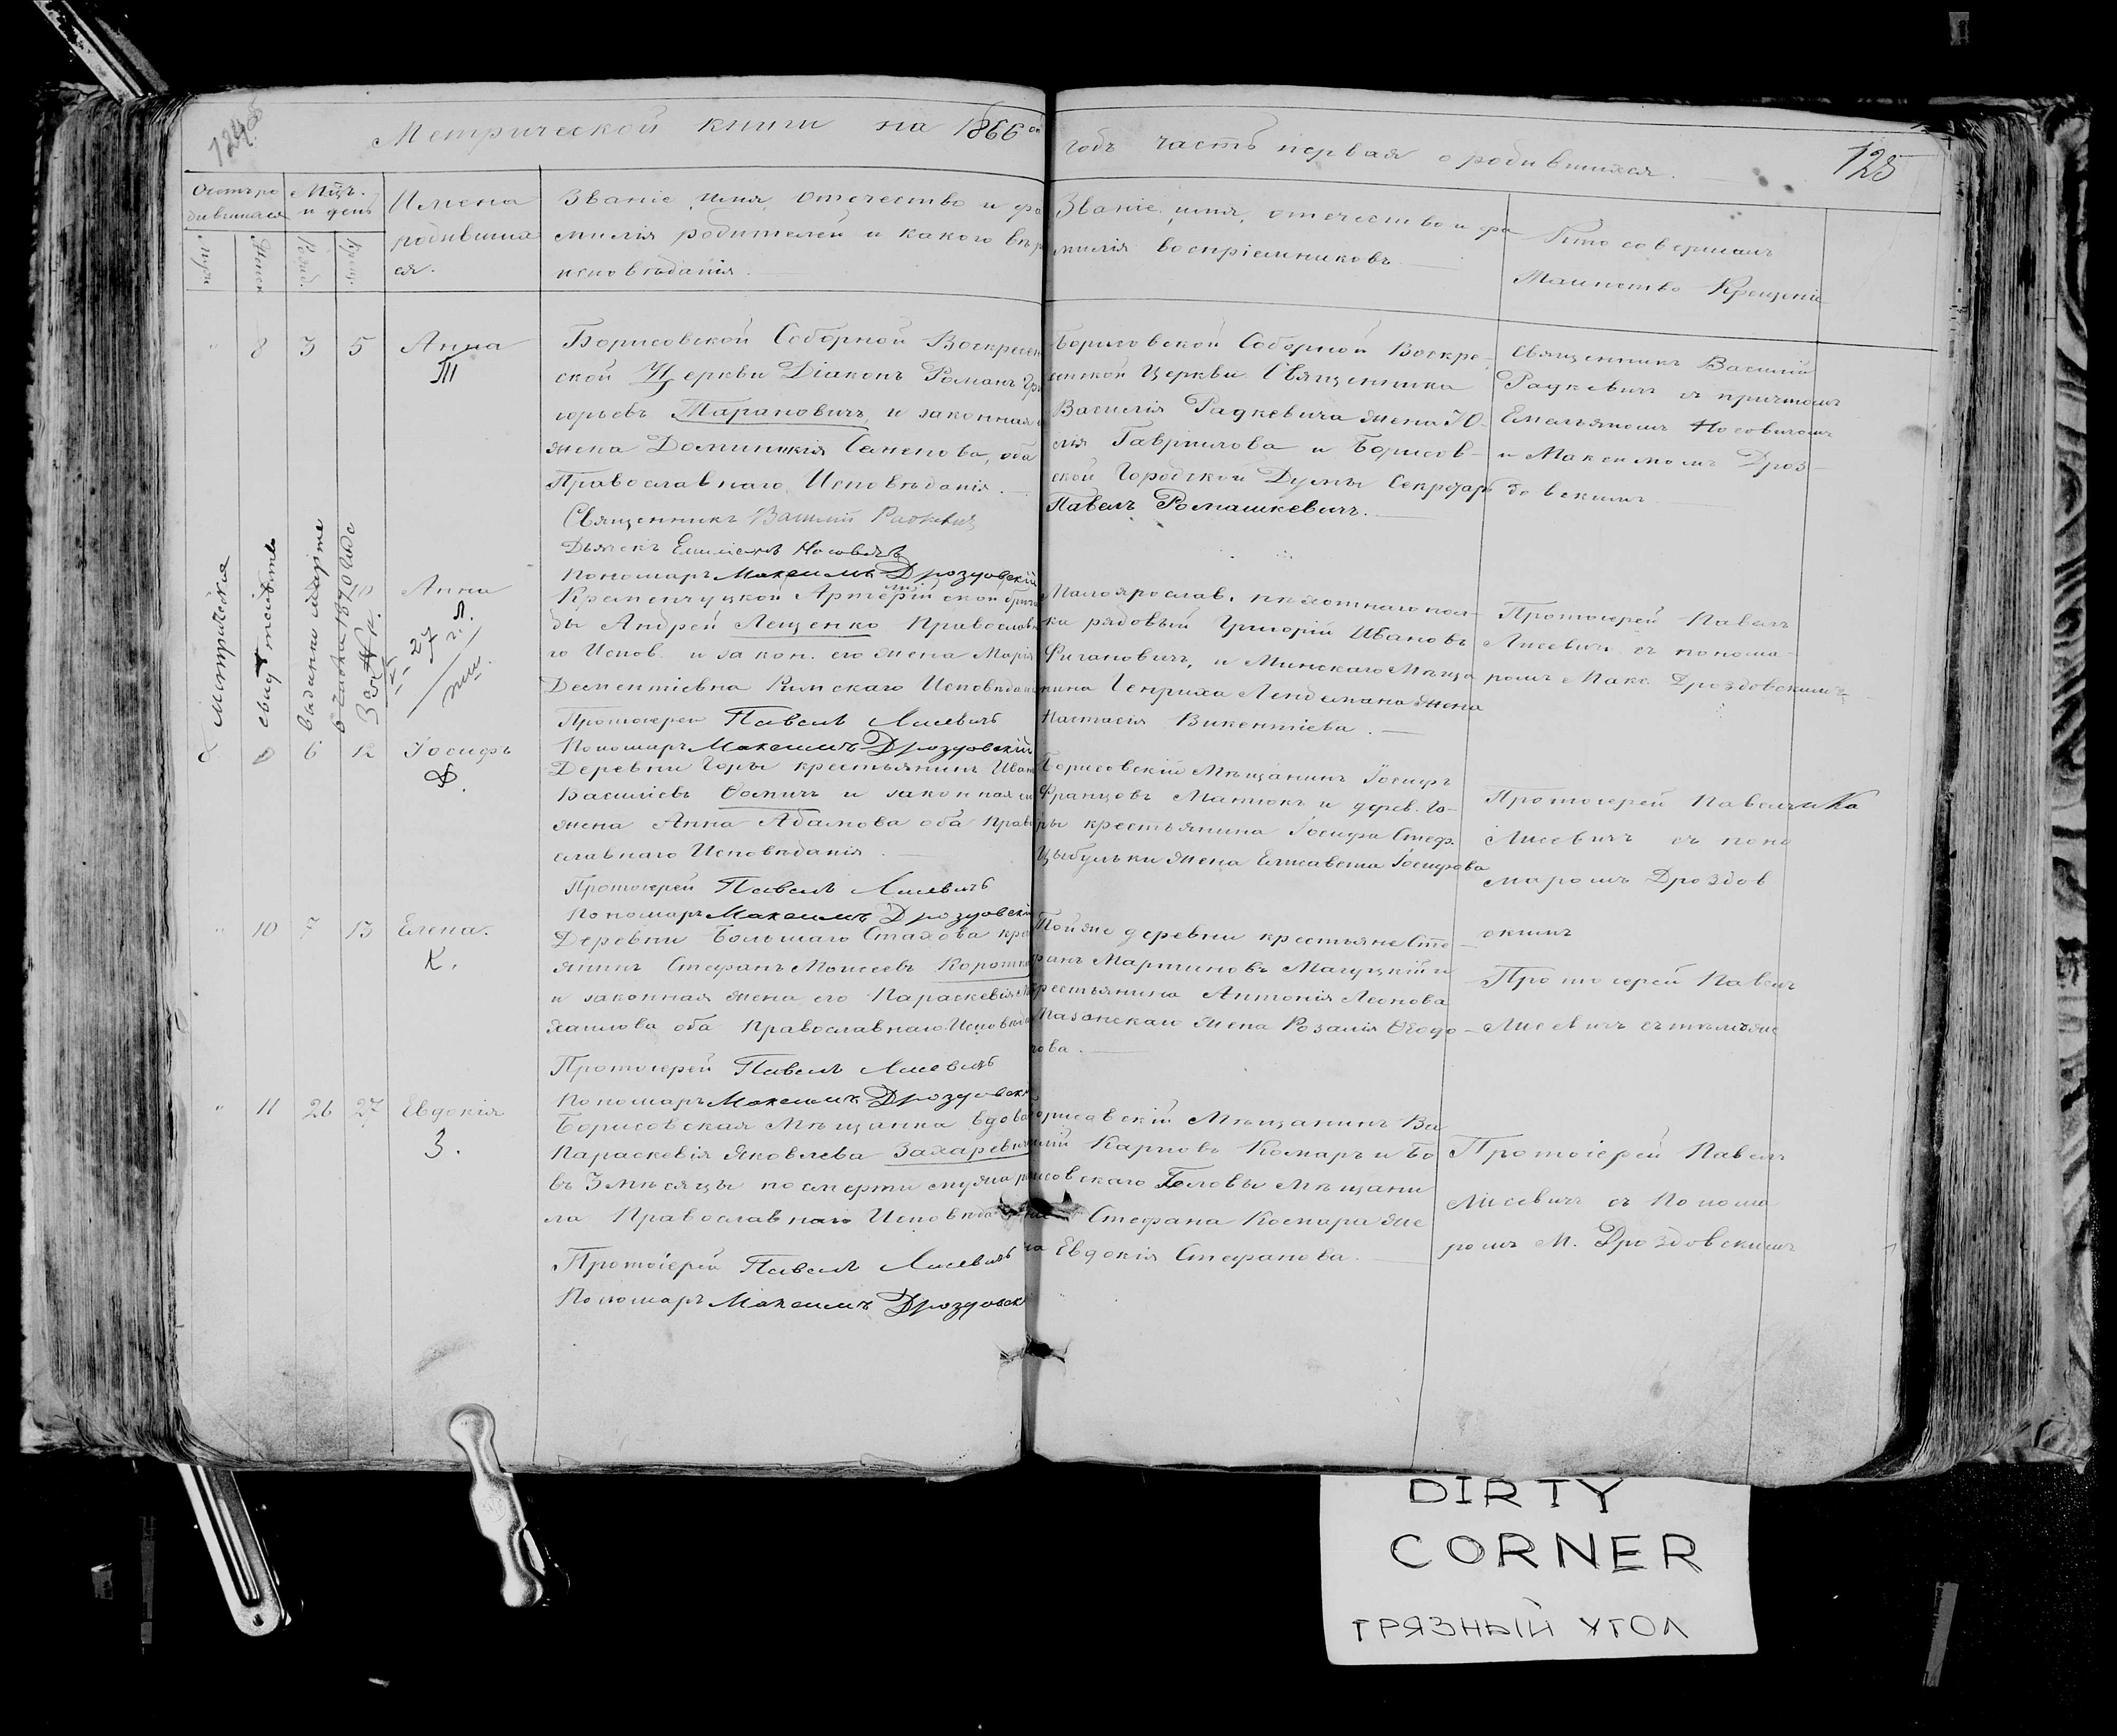 Метрической книги на 1866ой
годъ часть первая о родившихся.
125
Счетъ ро
дившихся
Мцъ.
и день
Имена
родивша
ся.
Званіе, имя, отечество и фа
милія родителей и какого вѣр
исповѣданія.
Званіе, имя, отечество и фа
милія воспріемниковъ.
Кто совершалъ
Таинство Крещенія
8 3 5 Анна
Т
Борисовской Соборной Воскресен
ской Церкви Діаконъ Романъ Гри
горьевъ Тарановичъ, и законная
жена Доминикія Семенова, оба
Православнаго Исповѣданія.
Священникъ Василій Радкевичъ
Дьячекъ Емиліанъ Носовичъ
Пономарь Максимъ Дроздовскій
Борисовской Соборной Воскре-
сенской Церкви Священника
Василія Радкевича жена Ю-
лія Гавриилова и Борисов-
ской Городской Думы Секретарь
Павелъ Ромашкевичъ.
Священникъ Василій
Радкевичъ съ причтомъ
Емельяномъ Носовичемъ
и Максимомъ Дроз-
довскимъ
Метрическое
свидѣтельство
выдано марта
6 1870 года
за №
27
10 Анна
Л.
Кременчуцкой Артиллерійской брига
ды Андрей Лещенко Православн
го Испов. и закон. его жена Марія
Дементіевна Римскаго Исповѣдан
Протоіерей Павелъ Лисевичъ
Пономарь Максимъ Дроздовскій
Малоярослав. пѣхотнаго пол-
ка рядовый Григорій Ивановъ
Фигановичъ, и Минскаго Мѣща
нина Генриха Лендемана жена
Настасія Викентіева.
Протоіерей Павелъ
Лисевичъ съ понома-
ремъ Макс. Дроздовскимъ
6 12 Іосифъ
Ѳ.
Деревни Горы крестьянинъ Иванъ
Василіевъ Ѳоминъ и законная его
жена Анна Адамова оба Право
славнаго Исповѣданія.
Протоіерей Павелъ Лисевичъ
Пономарь Максимъ Дроздовскій
Борисовскій Мѣщанинъ Іосифъ
Францовъ Матюкъ и дерев. Го-
ры крестьянина Іосифа Стеф.
Цыбульки жена Елисавета Іосифова
Протоіерей Павелъ
Лисевичъ съ поно
маремъ Дроздов
скимъ
10 7 13 Елена.
К.
Деревни Большаго Стахова кре
янинъ Стефанъ Моисеевъ Коротк
и законная жена его Параскевія Ми
хаилова оба Православнаго Исповѣда
Протоіерей Павелъ Лисевичъ
Пономарь Максимъ Дроздовск
Той же деревни крестьяне Сте-
фанъ Мартиновъ Мацуцкій и
крестьянина Антонія Леонова
Мазанскаго жена Розалія Ѳеодо-
рова.
Протоіерей Павелъ
Лисевичъ съ тѣмъ же
11 26 27 Евдокія
З.
Борисовская Мѣщанка вдова
Параскевія Яковлева Захаревич
въ 3 мѣсяцы по смерти мужа р
ла Православнаго Исповѣда
Протоіерей Павелъ Лисевичъ
Пономарь Максимъ Дроздовск
орисовскій Мѣщанинъ Ва
илій Карповъ Комаръ и Бо
рисовскаго Головы Мѣщани
Стефана Комара же
на Евдокія Стефанова.
Протоіерей Павелъ
Лисевичъ съ Понома
ремъ М. Дроздовскимъ
DIRTY
CORNER
ГРЯЗНЫЙ УГОЛ